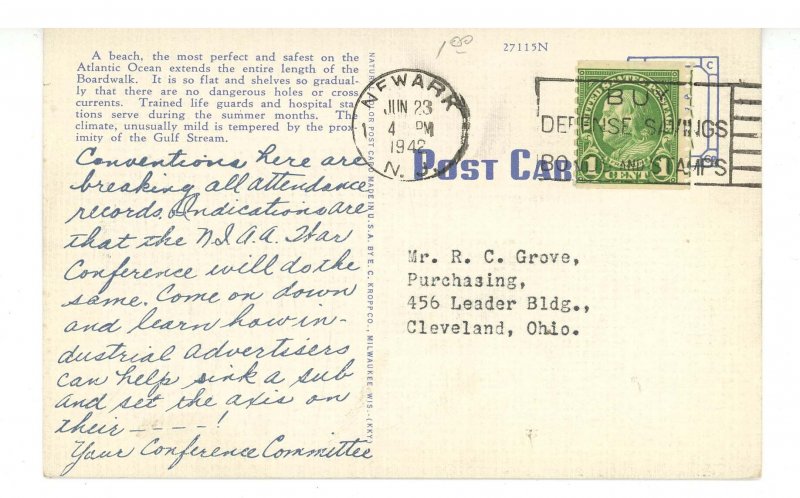 A beach, the most perfect and safest on the
Atlantic Ocean extends the entire length of the
Boardwalk. It is so flat and shelves so gradual-
ly that there are no dangerous holes or cross
currents. Trained life guards and hospital sta
tions serve during the summer months. Th
climate, unusually mild is tempered by the prox
imity of the Gulf Stream.
Conventions here are
breaking all attendance
records. Indications are
that the N.I.A.A. War
Conference will do the
same. Come on down
and learn how in-
dustrial Advertisers
can help sink a sub
and set the axis on
their ----!
Your Conference Committee
NATURAL COLOR POST CARD MADE IN U.S.A. BY E. C. KROPP CO., MILWAUKEE, WIS.-(KKY)
1.00
27115N
NEWARK
JUN 23
4 PM
1942
N. J.
POST CAR
UNITED STATES POSTAGE
1 1
CENT
BUY
DEFENSE SAVINGS
BONDS AND STAMPS
Mr. R. C. Grove,
Purchasing,
456 Leader Bldg.,
Cleveland, Ohio.